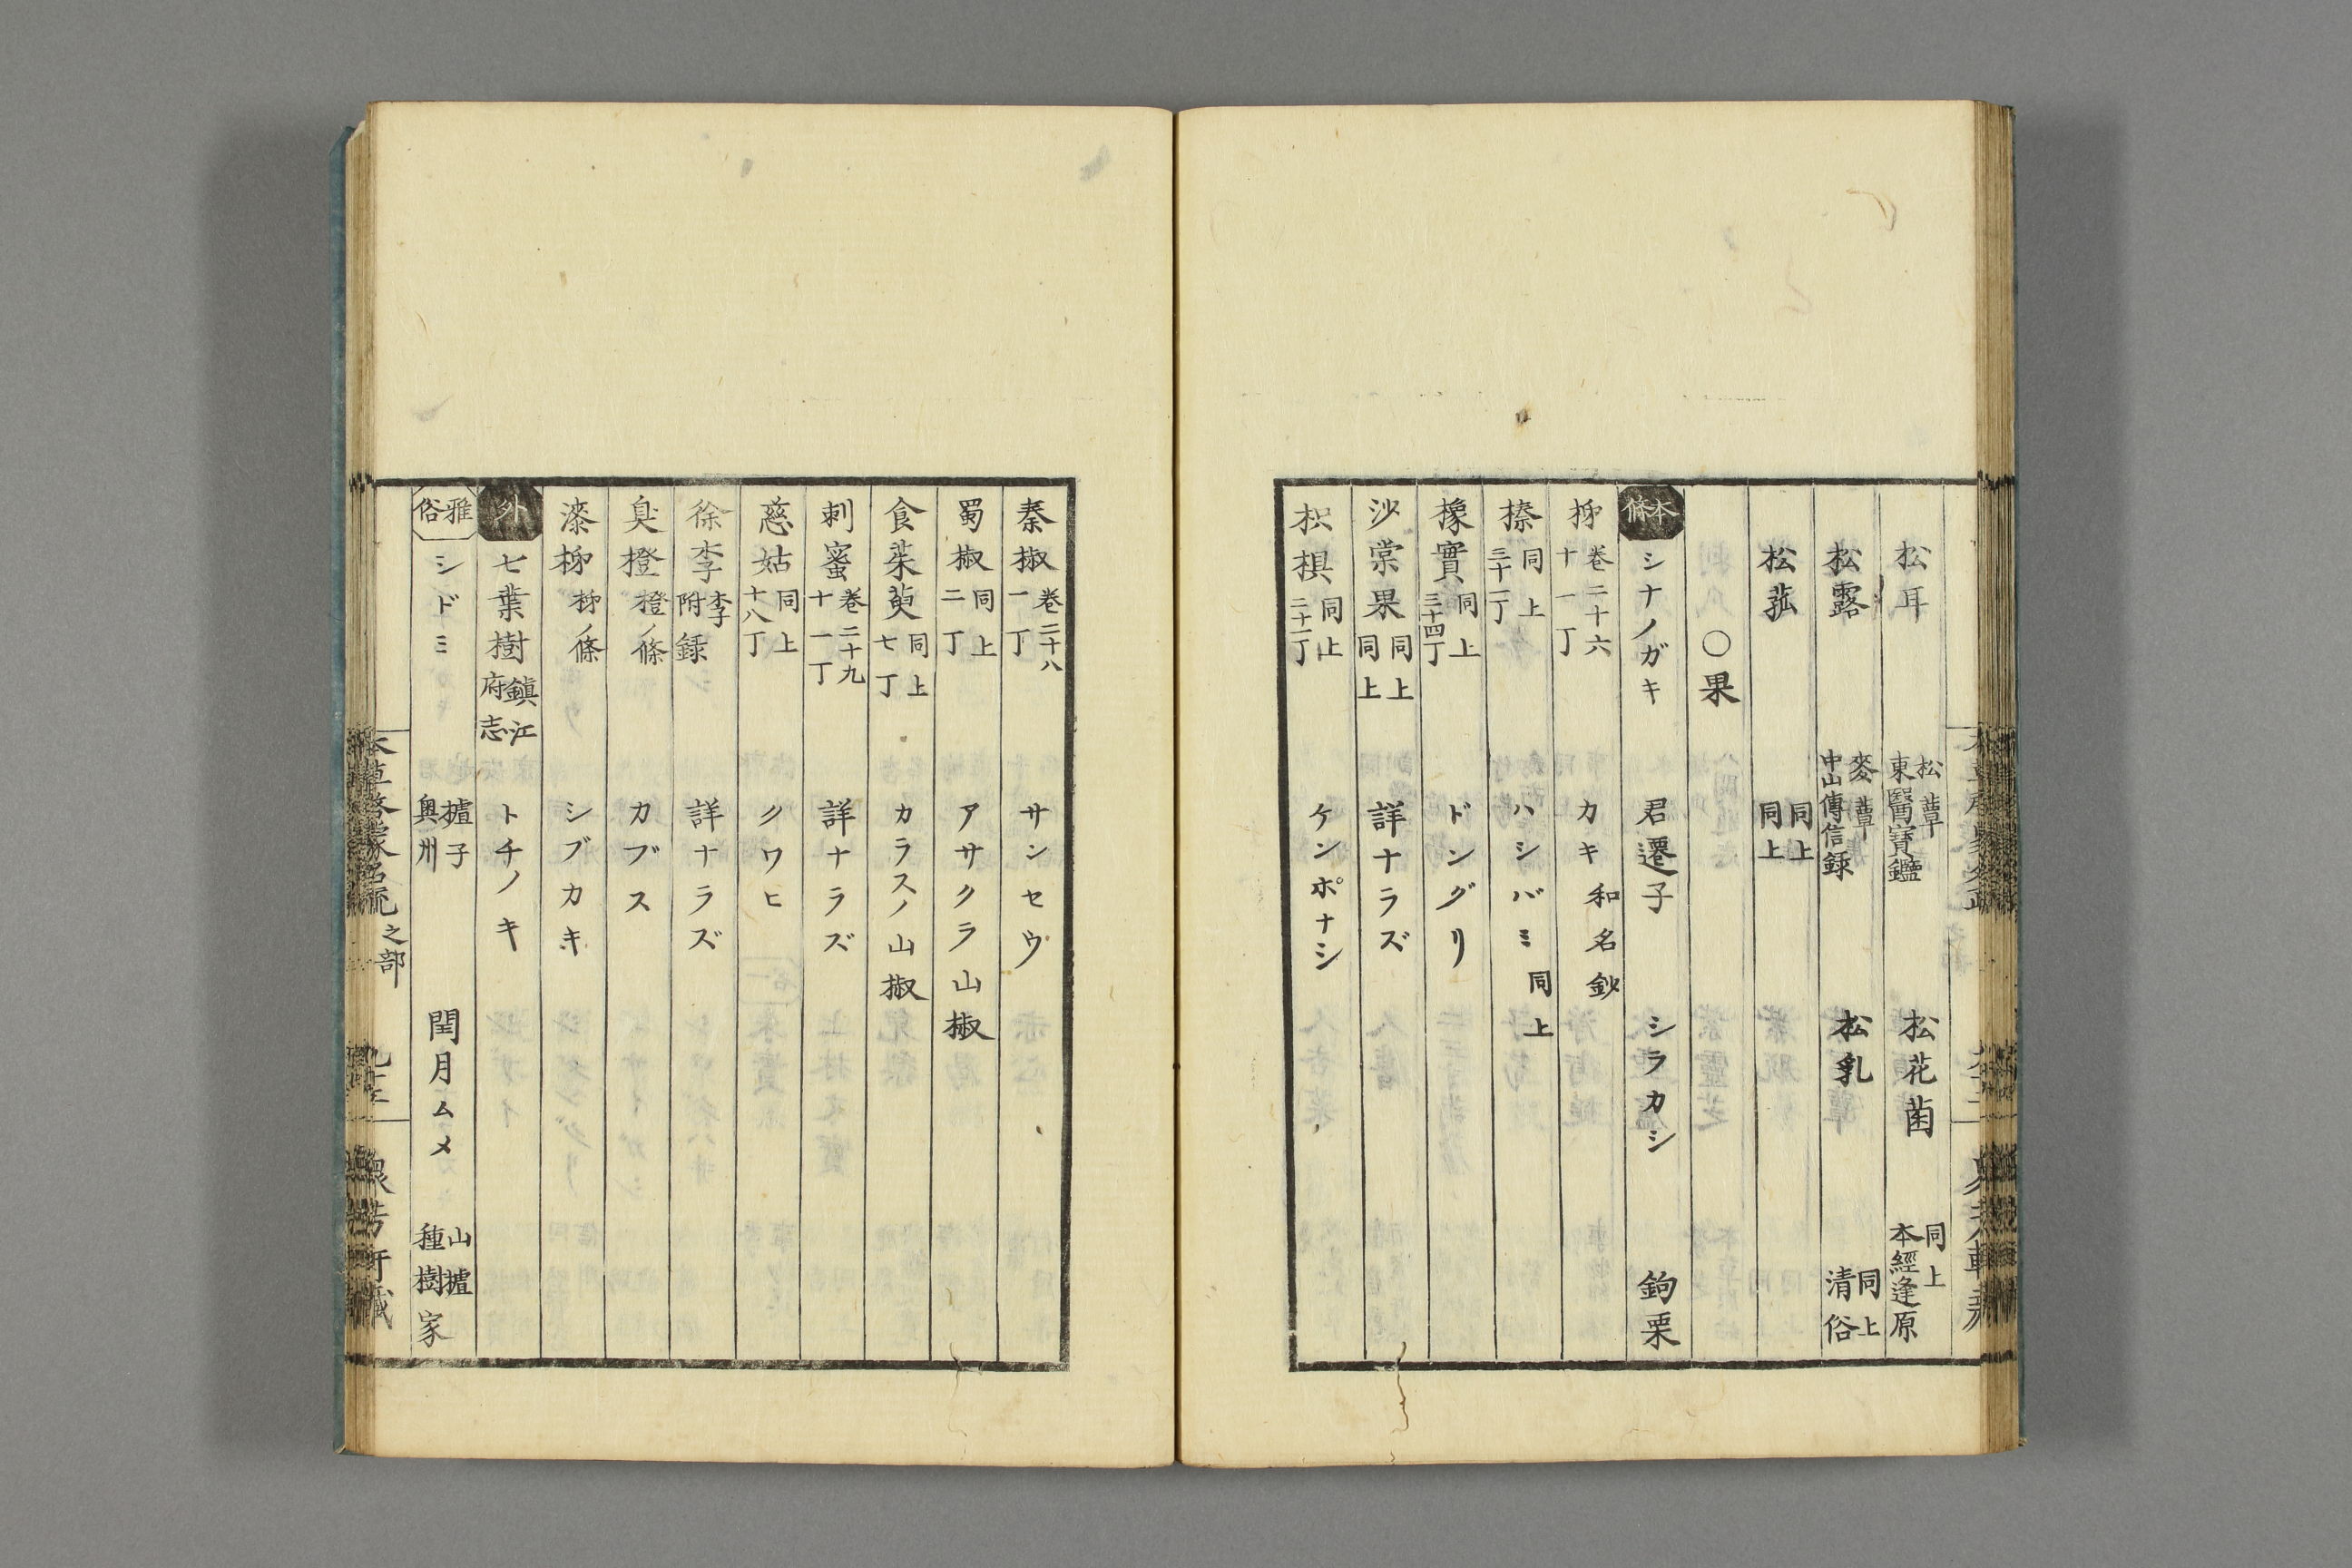 松耳 松蕈 東醫寶鑑 松花菌 同上 本經逢原
松露 麥蕈 中山傳信録 松乳 同上 清俗
松菰 同上 同上
○果
本條 シナノガキ 君遷子 シラカシ 鉤栗
柹 卷二十六 十一丁 カキ 和名鈔
榛 同上 三十二丁 ハシバミ 同上
橡實 同上 三十四丁 ドングリ
沙棠果 同上 同上 詳ナラズ
枳椇 同上 二十一丁 ケンポナシ
秦椒 卷二十八 一丁 サンセウ
蜀椒 同上 二丁 アサクラ山椒
食茱萸 同上 七丁 カラスノ山椒
刺蜜 卷二十九 十一丁 詳ナラズ
慈姑 同上 十八丁 クワヒ
徐李 李附録 詳ナラズ
臭橙 橙ノ條 カブス
漆柹 柹ノ條 シブカキ
外 七葉樹 鎭江府志 トチノキ
雅俗 シドミ 樝子 奥州 閏月ムメ 山樝 種樹家
本草啓蒙名疏 之部